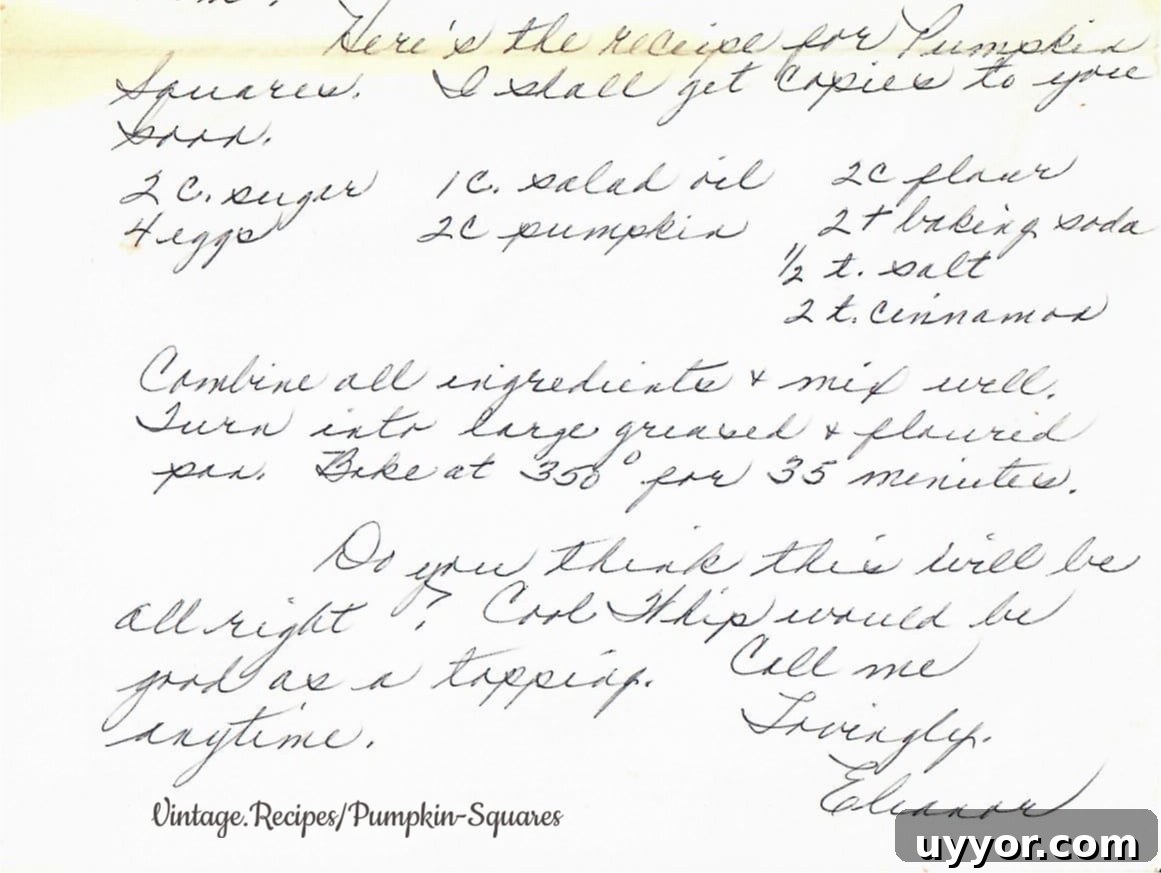 Here's the recipe for Pumpkin
Squares. I shall get copies to you
soon.
2 c. sugar 1 c. salad oil 2 c flour
4 eggs 2 c pumpkin 2 t baking soda
½ t. salt
2 t. cinnamon
Combine all ingredients & mix well.
Turn into large greased & floured
pan. Bake at 350° for 35 minutes.
Do you think this will be
all right? Cool Whip would be
good as a topping. Call me
anytime. Lovingly.
Eleanor
Vintage.Recipes/Pumpkin-Squares
uyyor.com